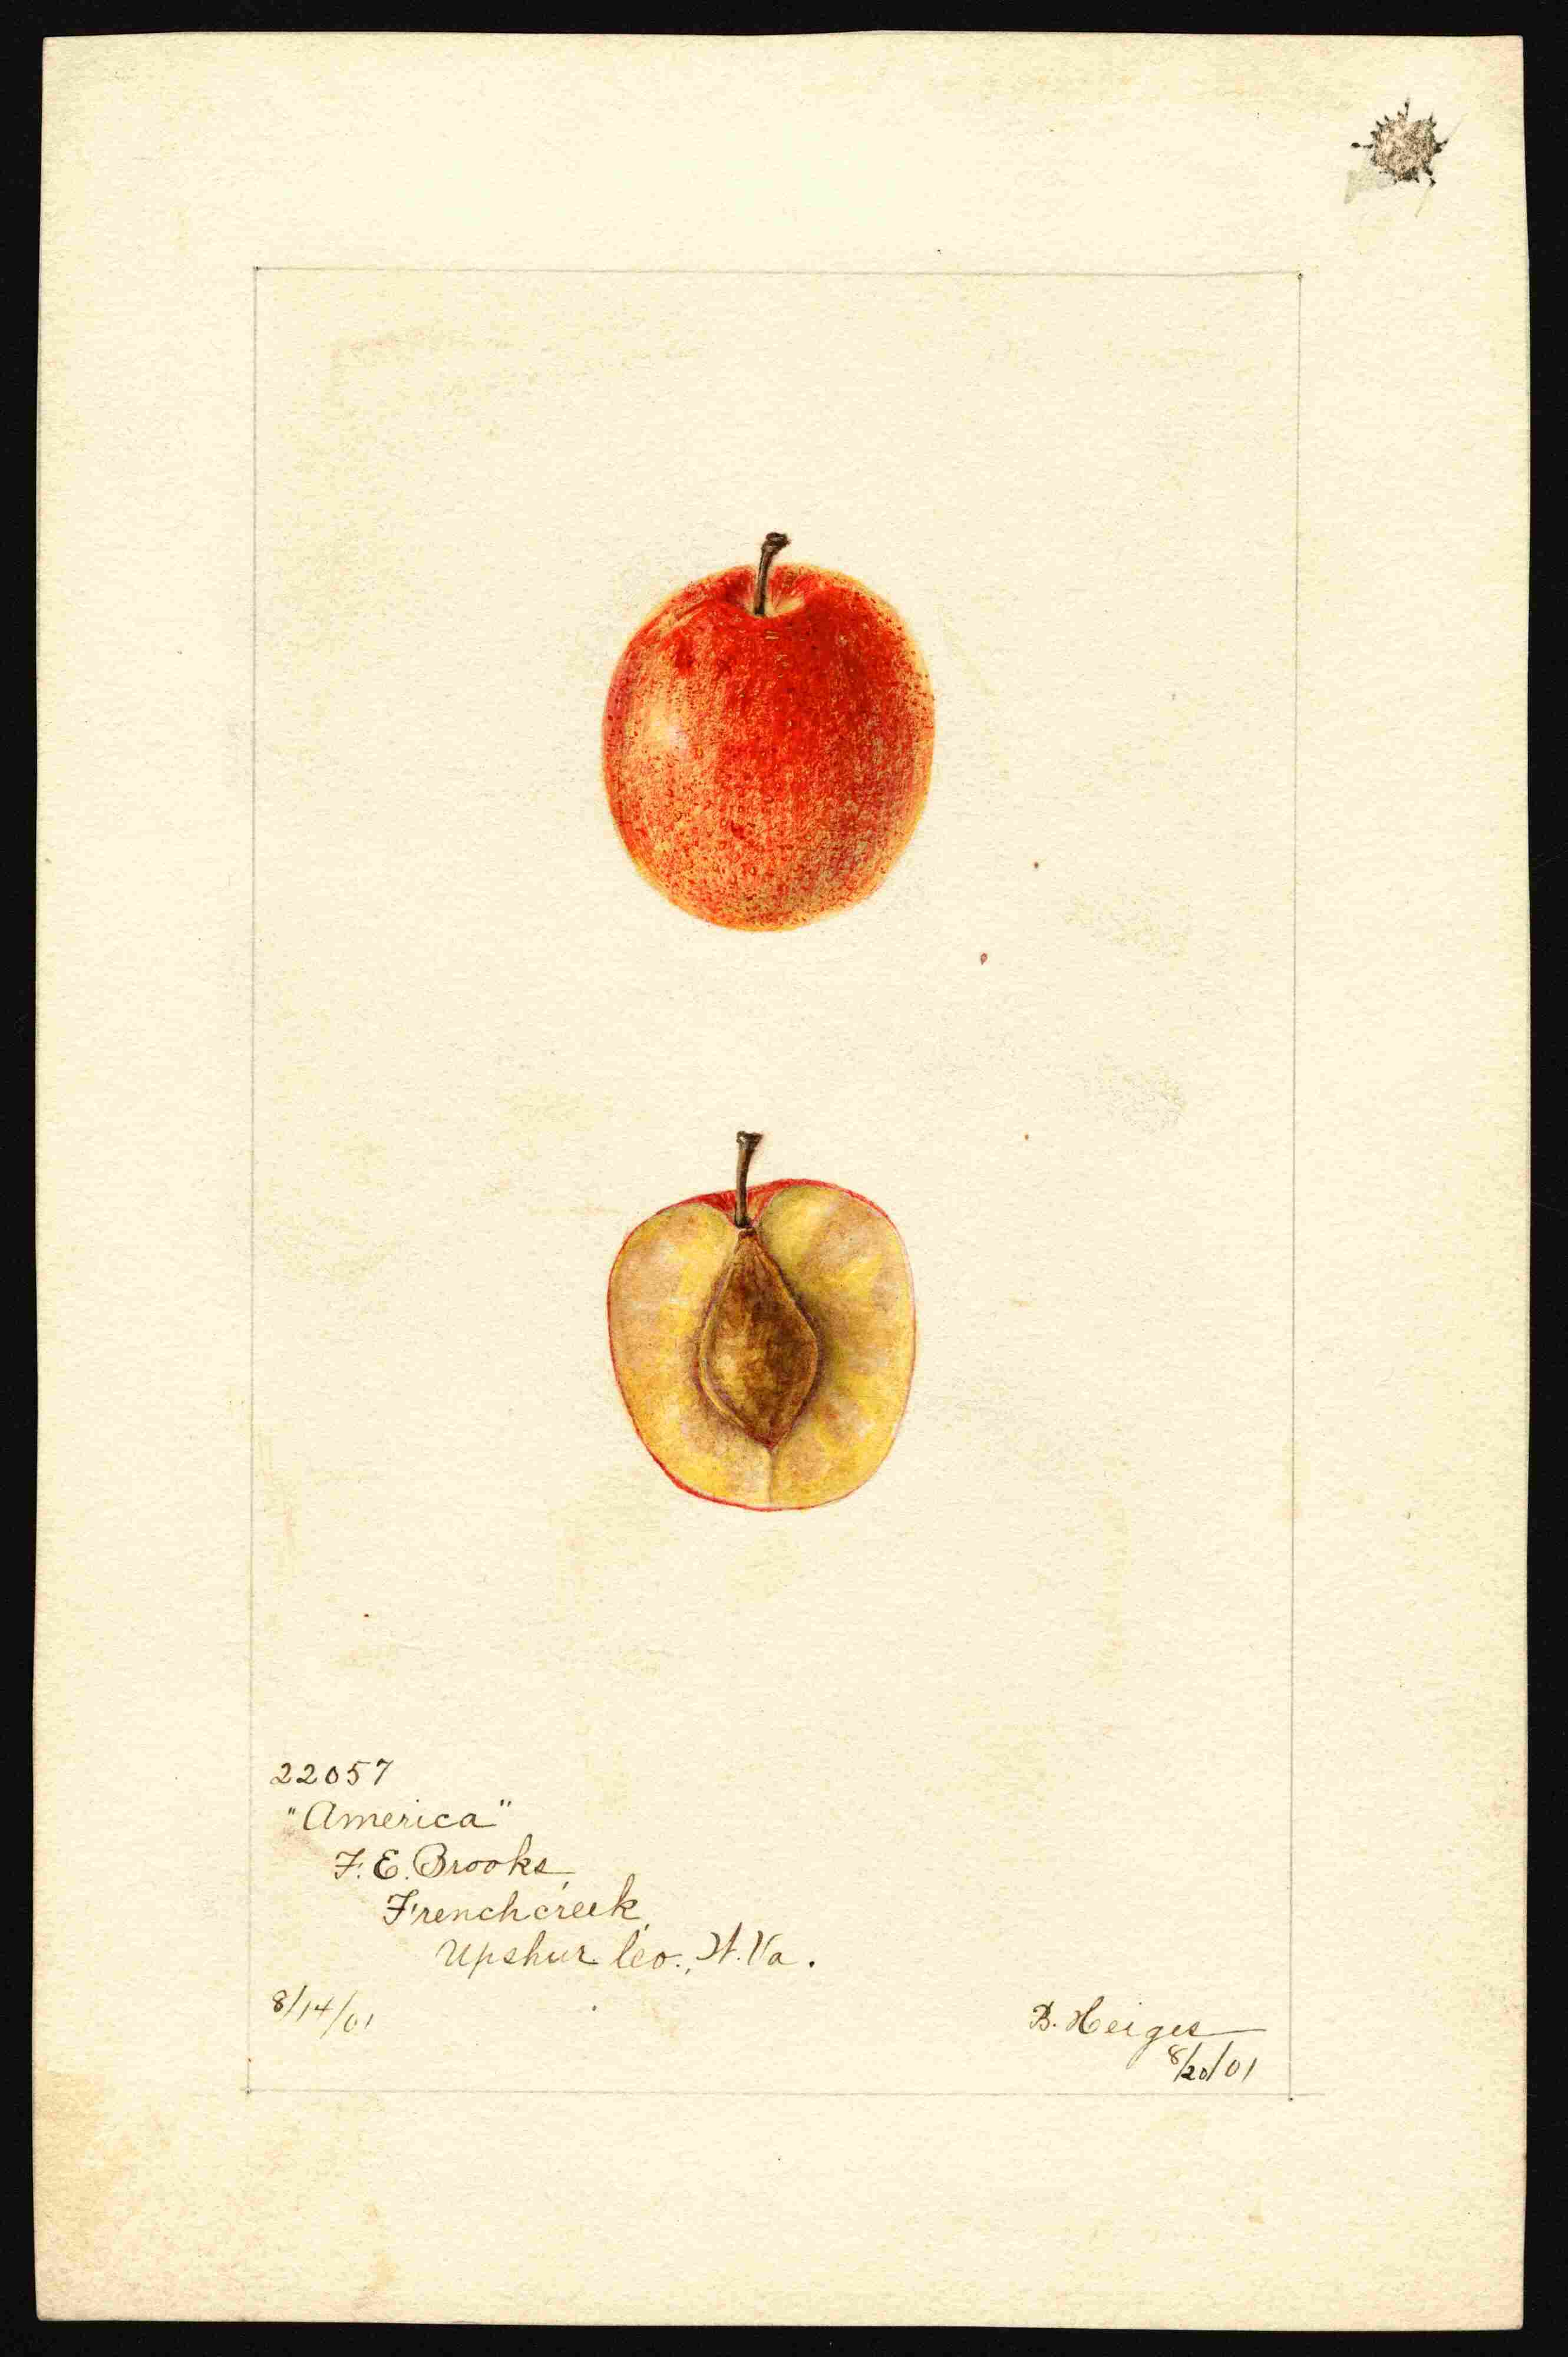 22057
"America"
F. E. Brooks,
Frenchcreek,
Upshur Co., W. Va.
8/14/01
B. Heiges
8/20/01